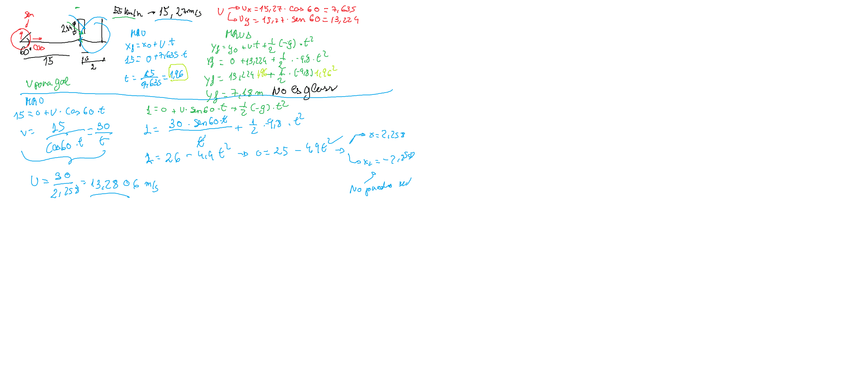 sen
cos
60°
15
2
55 km/h → 15,27 m/s
V → Vx = 15,27 · cos 60 = 7,635
Vy = 15,27 · sen 60 = 13,224
MRU
xf = x0 + v · t
15 = 0 + 7,635 · t
t = 15 / 7,635 = 1,96
MRUA
yf = y0 + v · t + 1/2 (-g) · t²
yf = 0 + 13,224 + 1/2 · -9,8 · t²
yf = 13,224 · 1,96 + 1/2 · (-9,8) 1,96²
yf = 7,18 m No es gol
V para gol
MRU
15 = 0 + v · cos 60 · t
v = 15 / cos 60 · t = 30 / t
v = 30 / 2,258 = 13,2806 m/s
1 = 0 + v · sen 60 · t + 1/2 (-g) · t²
1 = 30 · sen 60 · t / t + 1/2 · 9,8 · t²
1 = 26 - 4,9 t² → 0 = 25 - 4,9 t² →
0 = 2,258
xt = -2,258
No puede ser